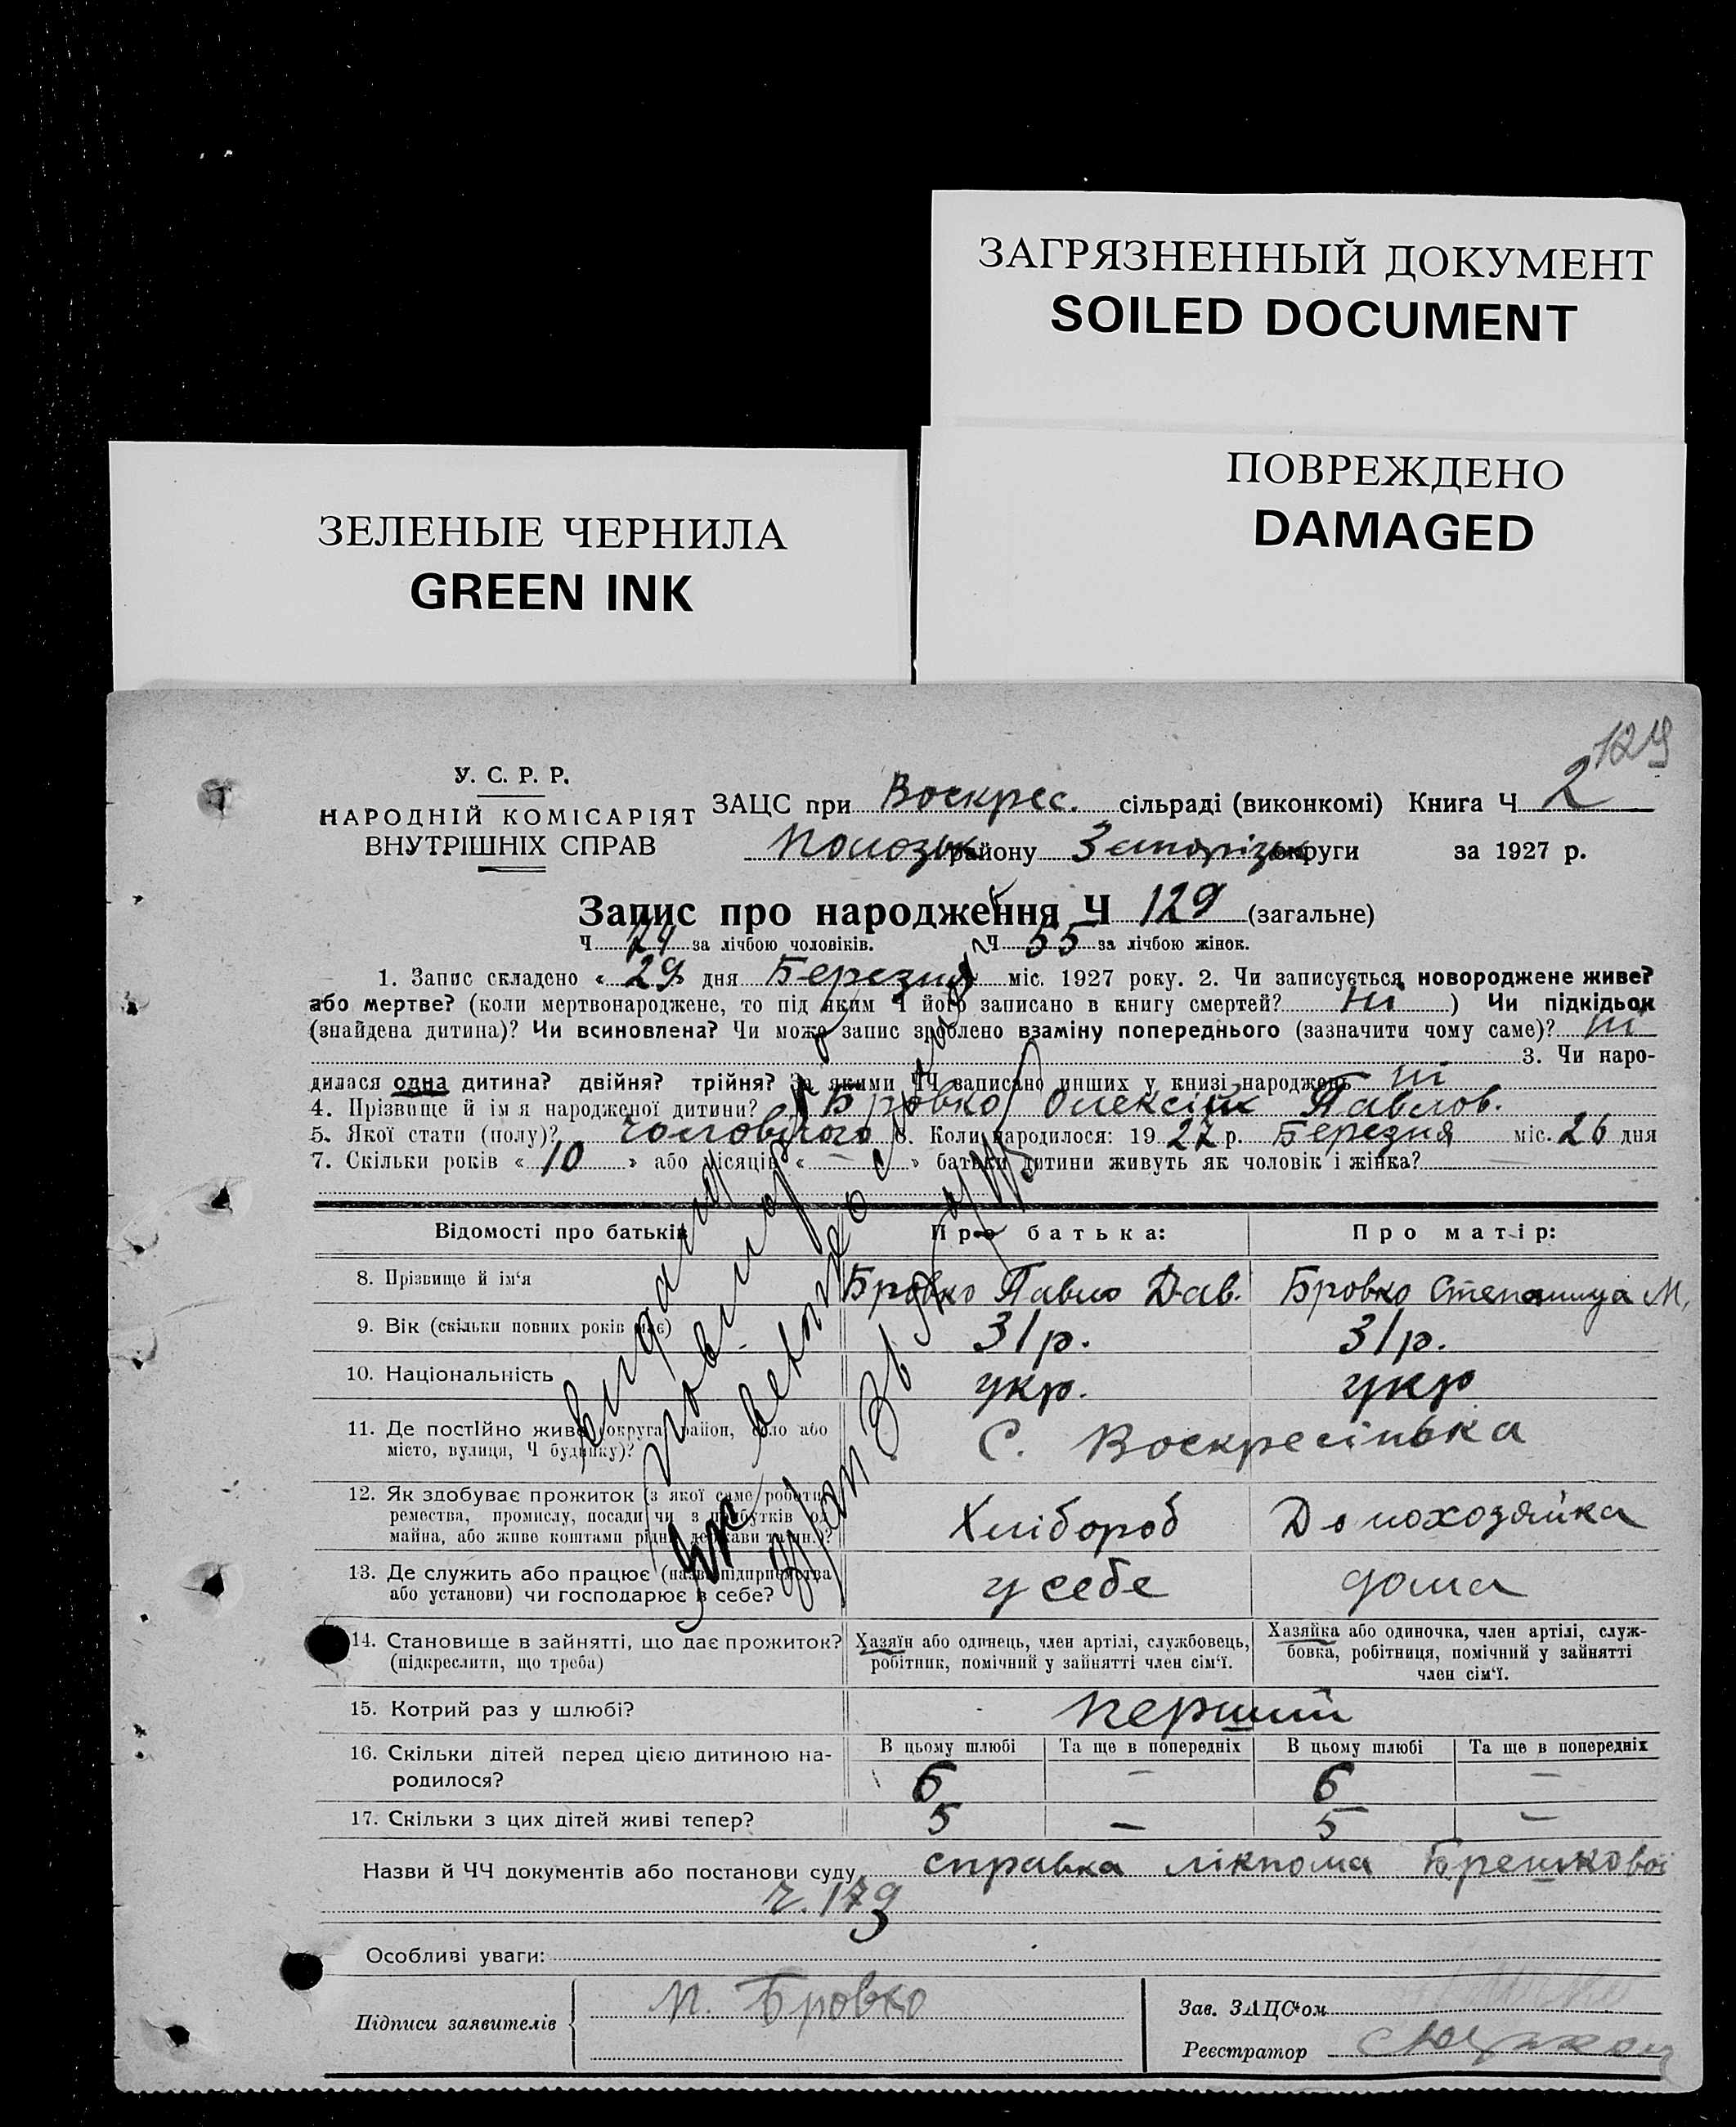 ЗАГРЯЗНЕННЫЙ ДОКУМЕНТ
SOILED DOCUMENT
ПОВРЕЖДЕНО
DAMAGED
ЗЕЛЕНЫЕ ЧЕРНИЛА
GREEN INK
129
У. С. Р. Р.
НАРОДНІЙ КОМІСАРІЯТ
ВНУТРІШНІХ СПРАВ
ЗАЦС при Воскрес. сільраді (виконкомі) Книга Ч 2
району Запорізьк округи за 1927 р.
Запис про народження Ч 129 (загальне)
Ч 74 за лічбою чоловіків. Ч 55 за лічбою жінок.
1. Запис складено « 29 » дня Березня міс. 1927 року. 2. Чи записується новороджене живе?
або мертве? (коли мертвонароджене, то під яким Ч його записано в книгу смертей? ні ) Чи підкідьок
(знайдена дитина)? Чи всиновлена? Чи може запис зроблено взаміну попереднього (зазначити чому саме)? ні
3. Чи наро-
дилася одна дитина? двійня? трійня? За якими ЧЧ записано инших у книзі народжень ні
4. Прізвище й ім'я народженої дитини? Бровко Олексій Павлов.
5. Якої стати (полу)? чоловічого 6. Коли народилося: 1927 р. Березня міс. 26 дня
7. Скільки років « 10 » або місяців « — » батьки дитини живуть як чоловік і жінка? —
Відомості про батьків
Про батька:
Про матір:
8. Прізвище й ім'я
Бровко Павло Дав.
Бровко Степанида М.
9. Вік (скільки повних років має)
31 р.
31 р.
10. Національність
укр.
укр
11. Де постійно живе (округа, район, село або
місто, вулиця, Ч будинку)?
С. Воскресінька
12. Як здобуває прожиток (з якої саме роботи,
ремества, промислу, посади чи з прибутків од
майна, або живе коштами рідні, держави та ин.)?
Хлібороб
Домохозяйка
13. Де служить або працює (назва підприємства
або установи) чи господарює в себе?
у себе
дома
14. Становище в зайнятті, що дає прожиток?
(підкреслити, що треба)
Хазяїн або одинець, член артілі, службовець,
робітник, помічний у зайнятті член сім'ї.
Хазяйка або одиночка, член артілі, служ-
бовка, робітниця, помічний у зайнятті
член сім'ї.
15. Котрий раз у шлюбі?
перший
16. Скільки дітей перед цією дитиною на-
родилося?
В цьому шлюбі
Та ще в попередніх
В цьому шлюбі
Та ще в попередніх
6 — 6 —
17. Скільки з цих дітей живі тепер?
5 — 5 —
Назви й ЧЧ документів або постанови суду справка лікпома Брешкової
ч. 179
Особливі уваги:
Підписи заявителів
П. Бровко
Зав. ЗАЦС'ом
Реєстратор